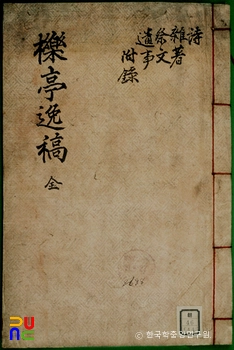 詩
雜著
祭文
遺事
附錄
櫟亭逸稿 全
© 한국학중앙연구원